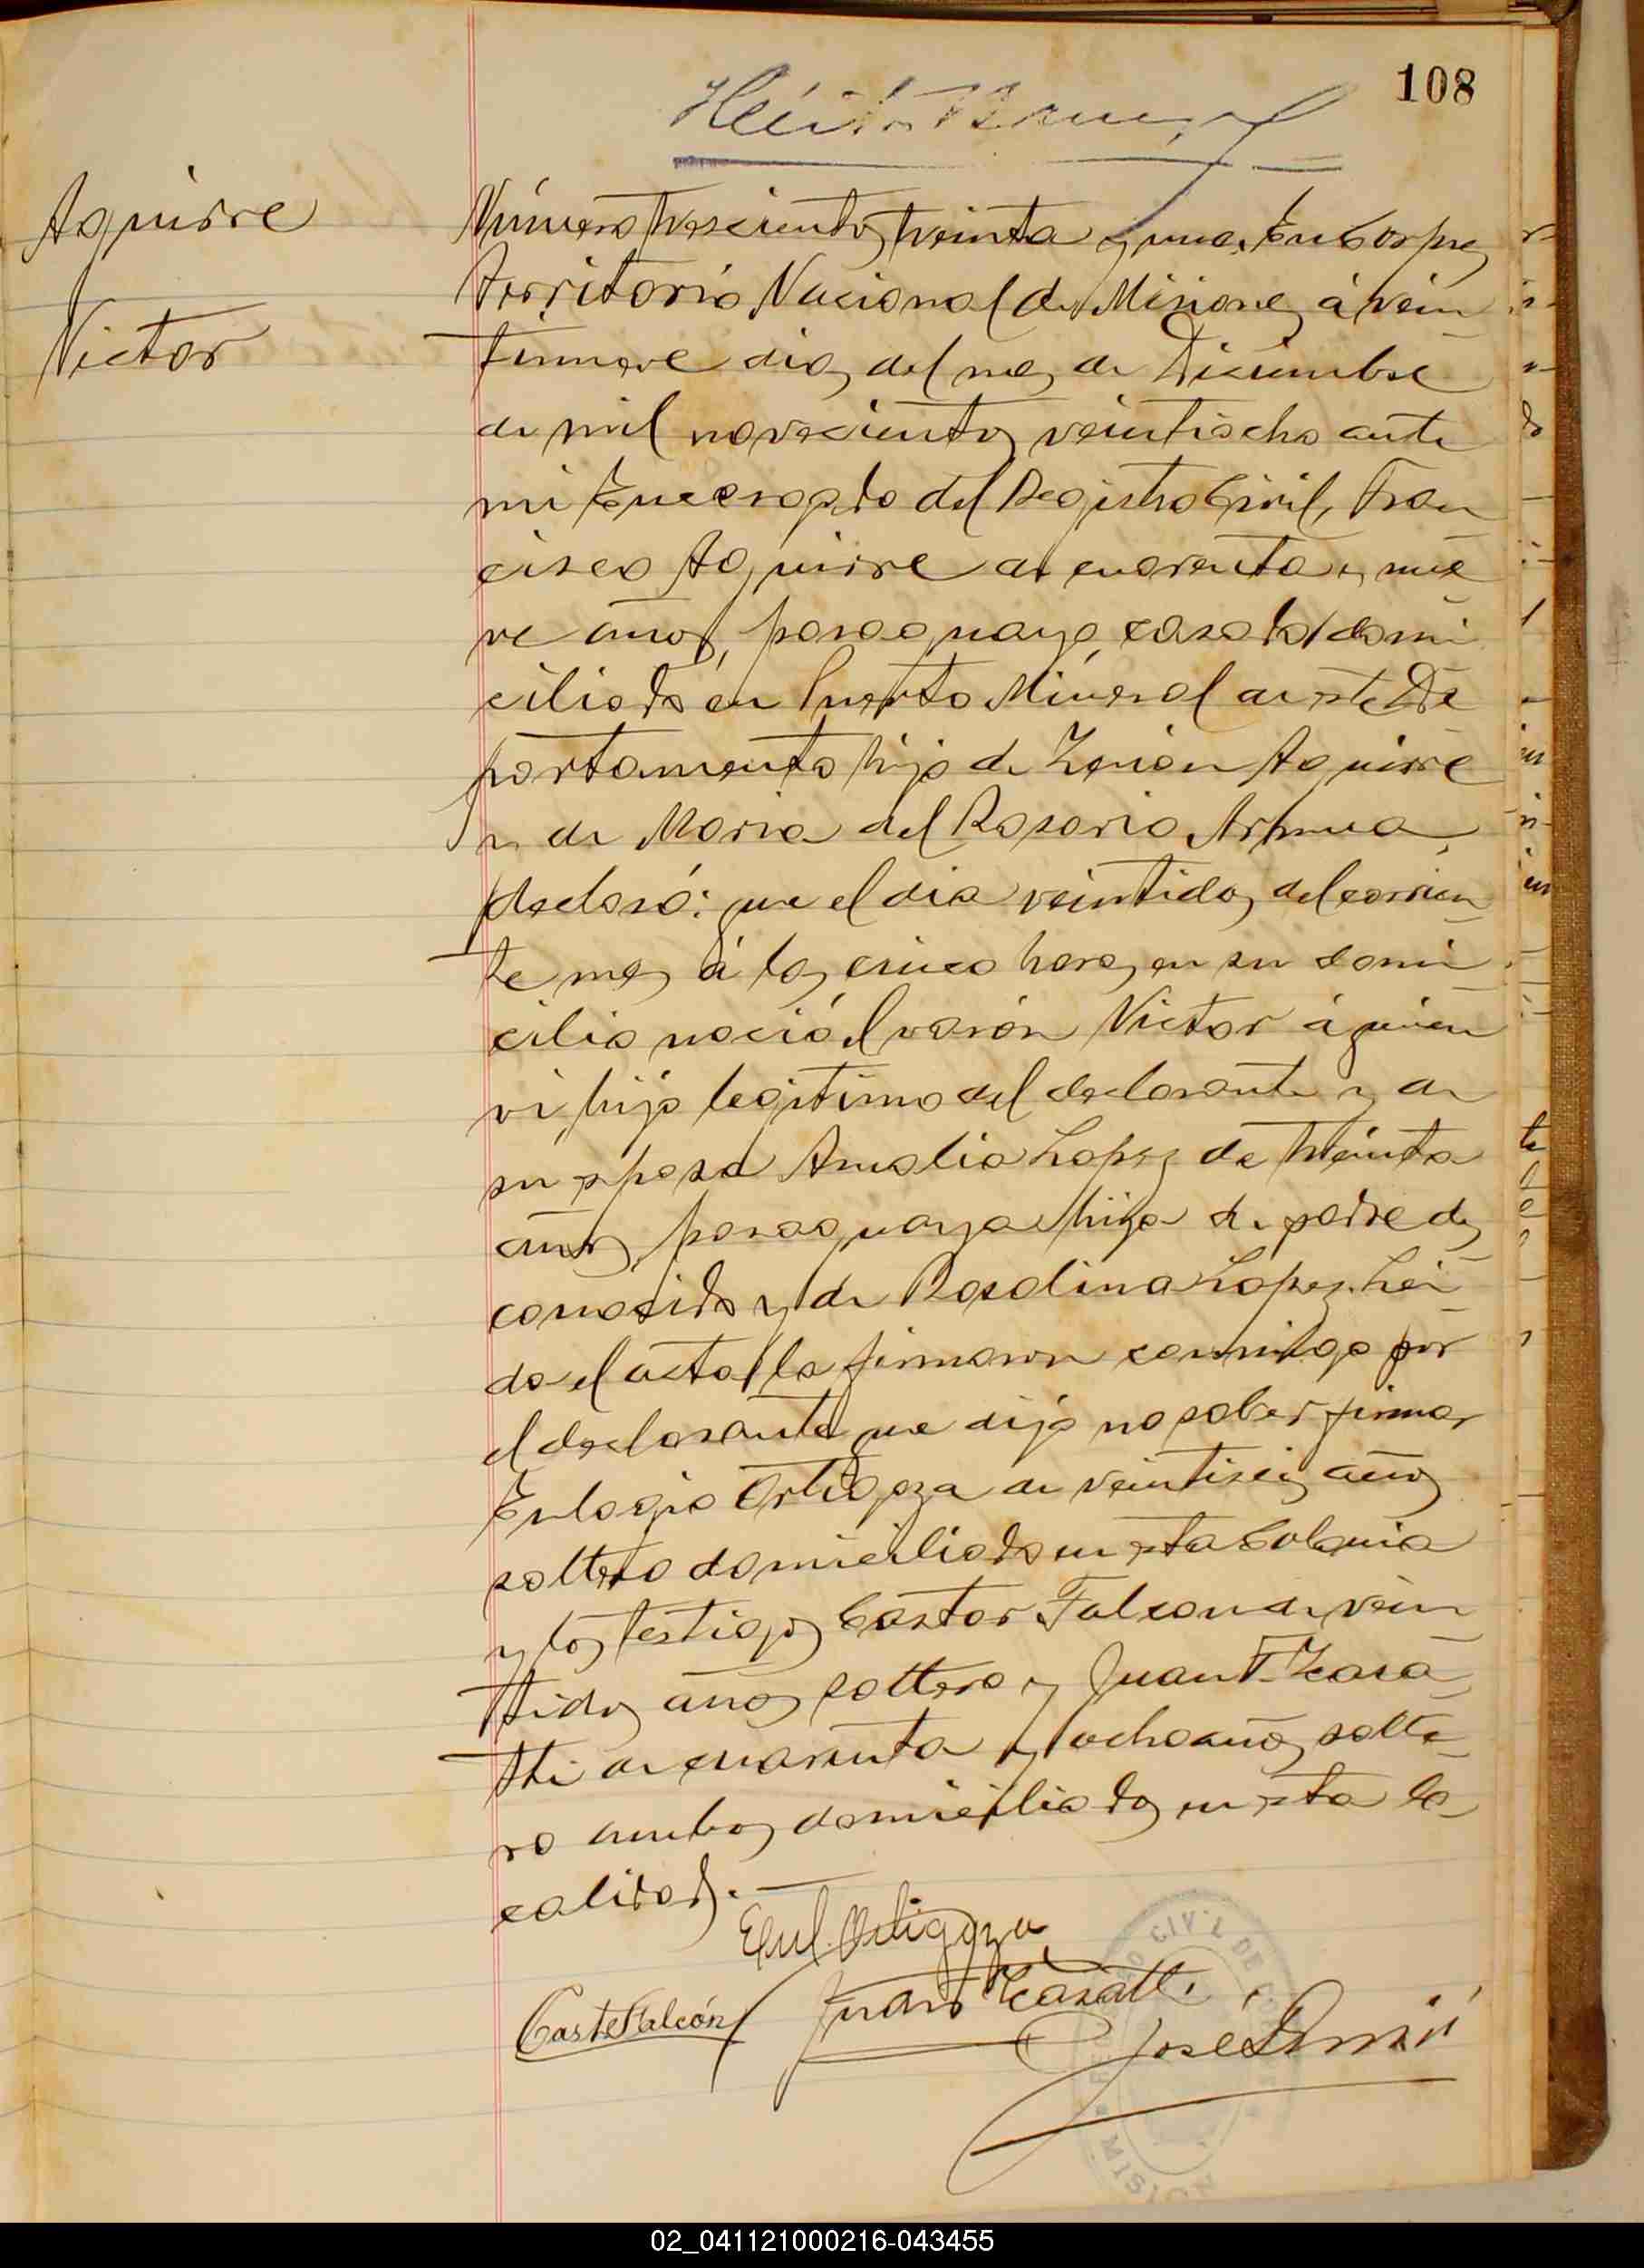 108
Aguirre
Victor
Número trescientos treinta y uno. En Corpus
Territorio Nacional de Misiones á vein
tinueve dias del mes de Diciembre
de mil novecientos veintiocho ante
mi Encargado del Registro Civil, Fran
cisco Aguirre de cuarenta y nue
ve años, paraguayo, casado, domi
ciliado en Puerto Mineral de este De
partamento hijo de Zenón Aguirre
y de Maria del Rosario Armoa
declaró: que el dia veintidos del corrien
te mes á las cinco horas en su domi
cilio nació el varón Victor á quien
vi, hijo legitimo del declarante y de
su esposa Amalia Lopez de treinta
años paraguaya hija de padre des
conocido y de Rosalina Lopez. Lei
da el acta la firmaron conmigo por
el declarante que dijo no saber firmar
Eulogio Ortigoza de veintiseis años
soltero domiciliado en esta Colonia
y los testigos Castor Falcon de vein
tidos años soltero y Juan T. Zara
tti de cuarenta y ocho años solte
ro ambos domiciliados en esta lo
calidad.
Eul. Ortigoza
Castor Falcón
Juan T. Zaratti
José
CIVIL DE
02_041121000216-043455